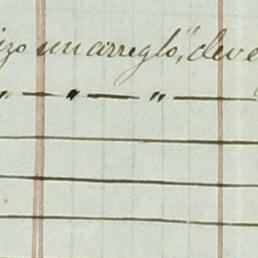 izo un arreglo", deve
" — " — " —